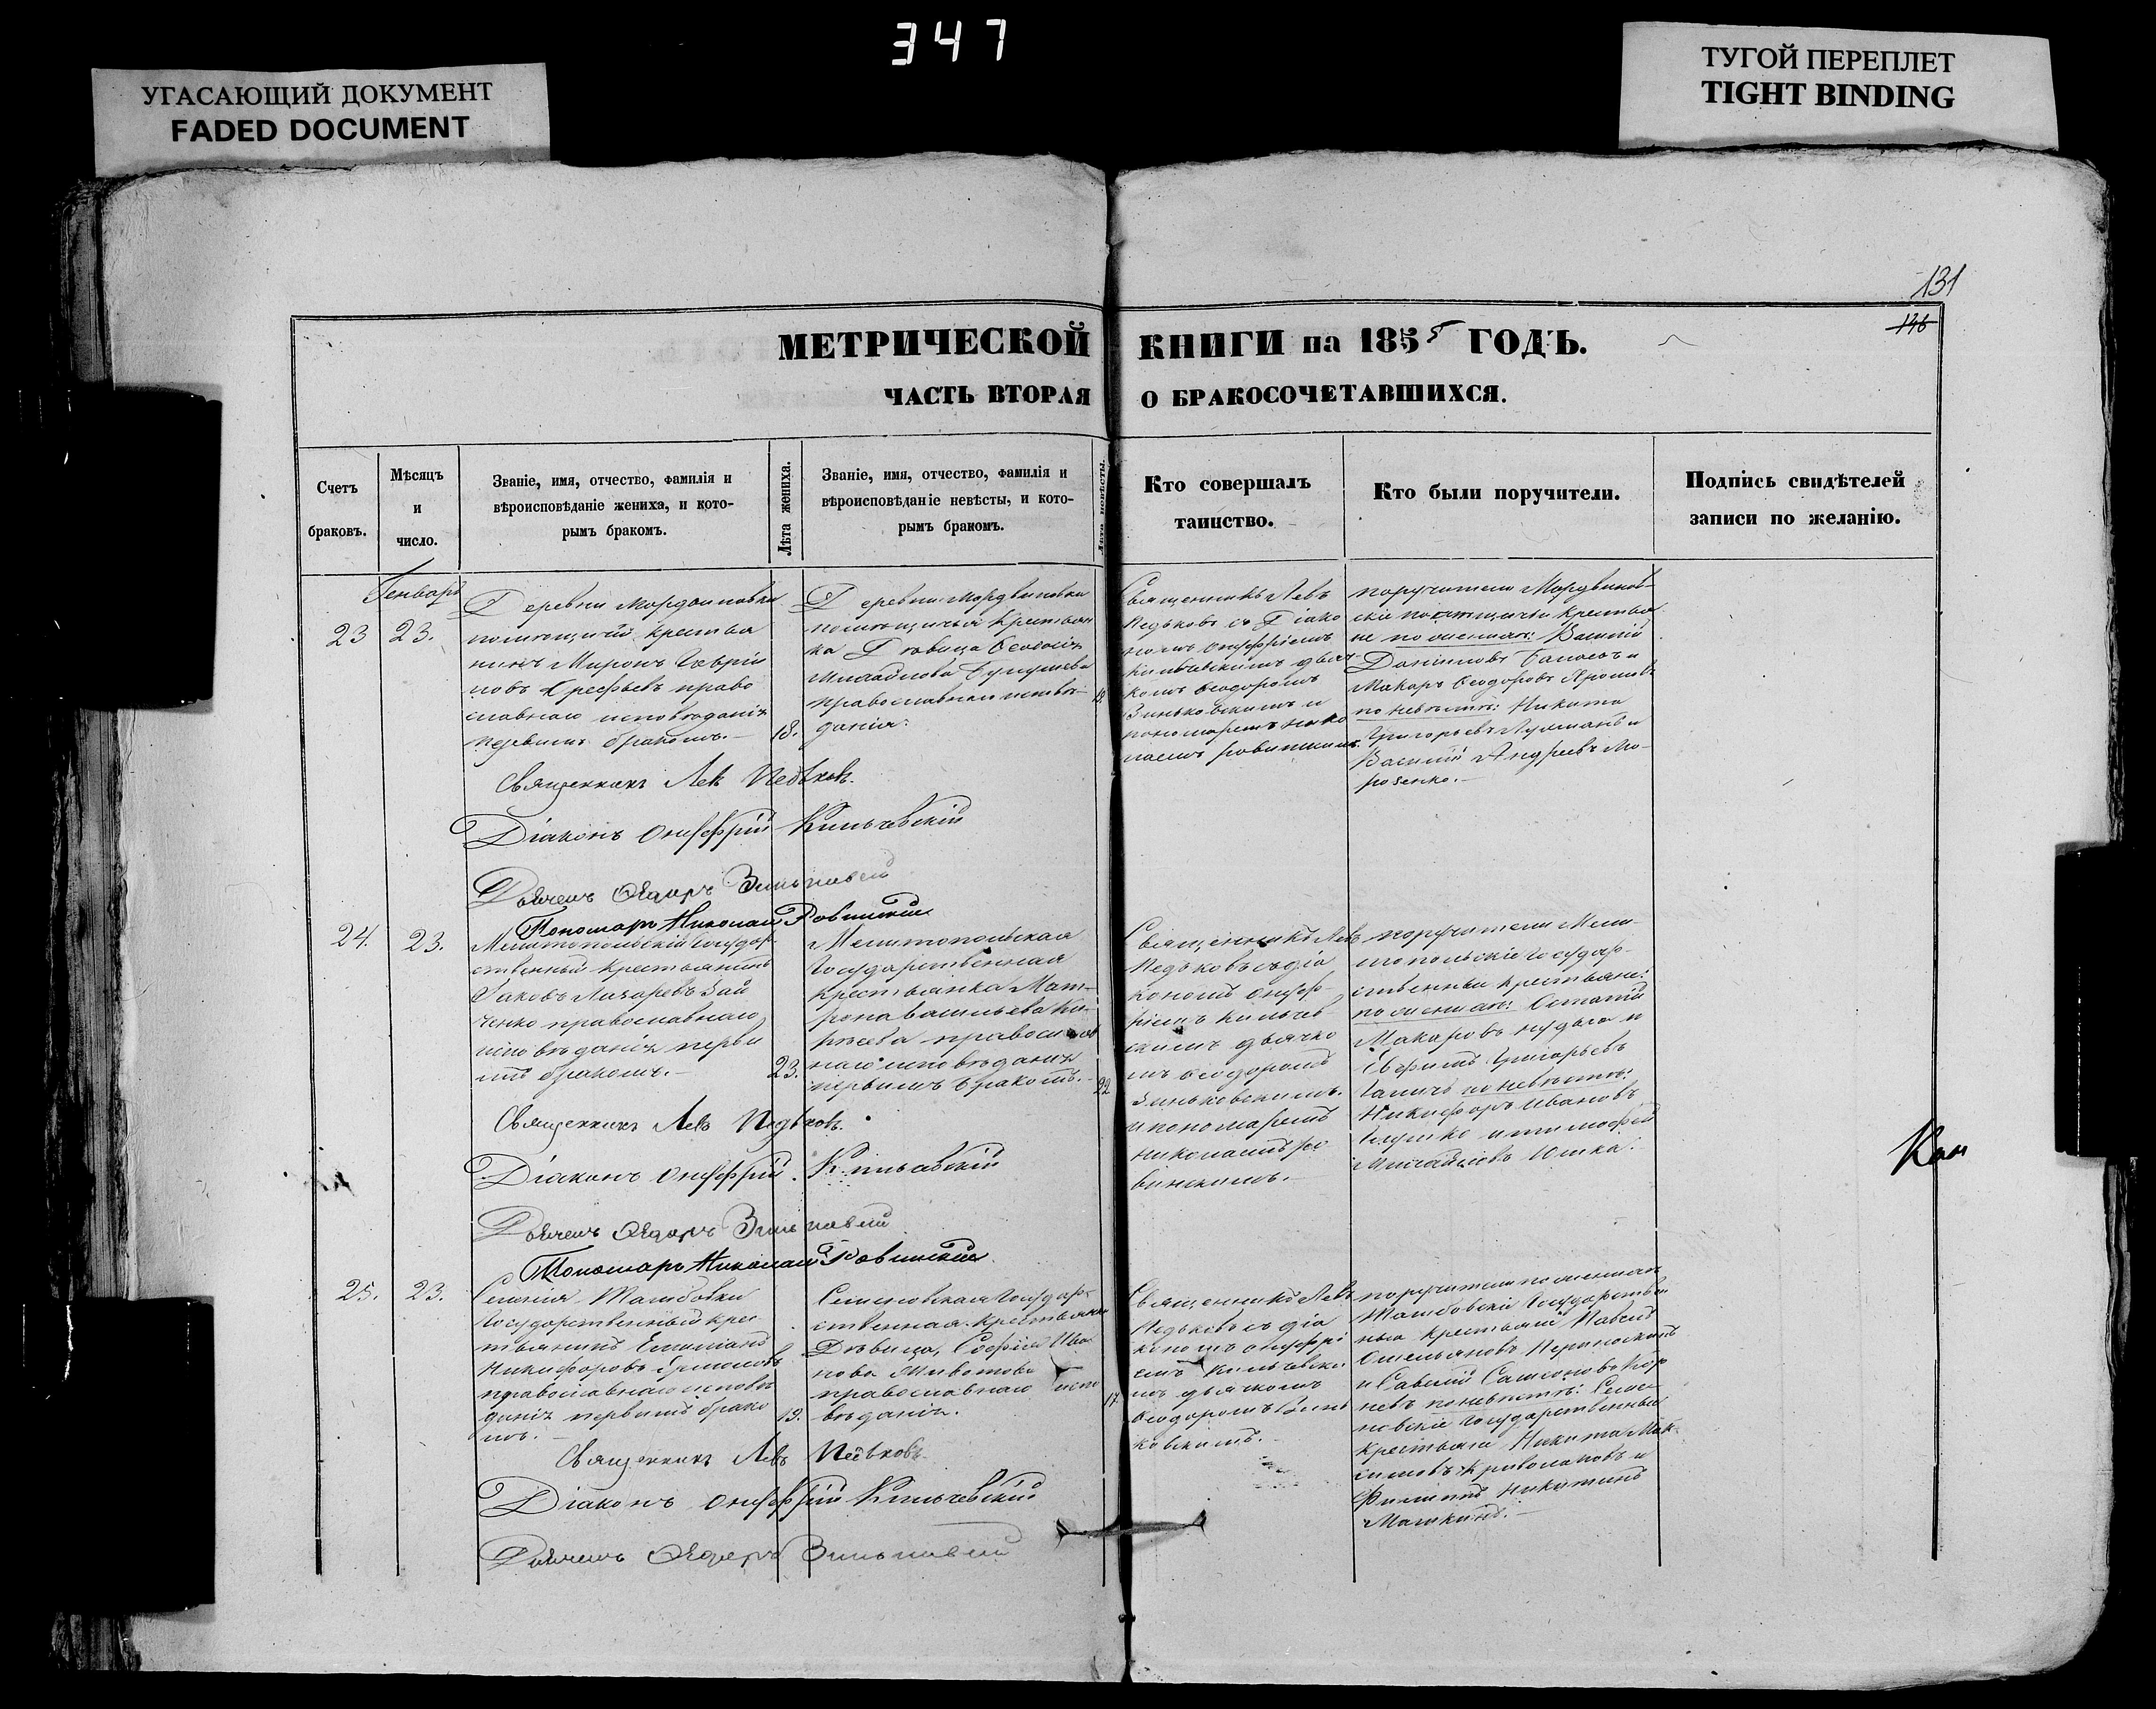 347
УГАСАЮЩИЙ ДОКУМЕНТ
FADED DOCUMENT
ТУГОЙ ПЕРЕПЛЕТ
TIGHT BINDING
131
146
МЕТРИЧЕСКОЙ КНИГИ на 1855 ГОДЪ.
ЧАСТЬ ВТОРАЯ О БРАКОСОЧЕТАВШИХСЯ.
Счетъ
браковъ.
Мѣсяцъ
и
число.
Званіе, имя, отчество, фамилія и
вѣроисповѣданіе жениха, и кото-
рымъ бракомъ.
Лѣта жениха.
Званіе, имя, отчество, фамилія и
вѣроисповѣданіе невѣсты, и кото-
рымъ бракомъ.
Лѣта невѣсты.
Кто совершалъ
таинство.
Кто были поручители.
Подпись свидѣтелей
записи по желанію.
Генварь
23
23.
Деревни Мордвиновки
помющичій крестья
нинъ Миронъ Гаврiи
ловъ право
славнаго исповѣданія
первымъ бракомъ.
18.
Деревни Мордвиновки
помющичья крестьян
ка Дѣвица Ѳеодосія
Михайлова
православнаго исповѣ-
данія:
Священникъ Левъ
Педьковъ съ Діако
номъ Онуфріемъ
Кильчевскимъ дьяч
комъ Ѳеодоромъ
Зиньковскимъ и
пономаремъ Нико
лаемъ Ровинскимъ.
поручители Мордвинов-
скіе помющичьи крестья
не по женихъ: Василій
Даниловъ и
Макаръ Ѳеодоровъ
по невѣстѣ: Никита
Григорьевъ и
Василій Андреевъ Мо-
розенко.
Священникъ Левъ Педьковъ.
Діаконъ Онуфрій Кильчевскій
Дьячекъ Ѳедоръ Зиньковскій
Пономарь Николай Ровинскій
24.
23.
Мелитопольскій государ-
ственный крестьянинъ
Іаковъ Лазаревъ Зай
ченко православнаго
исповѣданія первы
мъ бракомъ.
23.
Мелитопольская
государственная
крестьянка Мат-
рона Васильева Ки-
рѣева православ
наго исповѣданія
первымъ бракомъ.
22
Священникъ Левъ
Педьковъ съ діа
кономъ Онуф-
ріемъ Кильчев
скимъ дьячко
мъ Ѳеодоромъ
Зиньковскимъ.
и пономаремъ
Николаемъ Ро
винскимъ.
поручители Мели-
топольскіе государ-
ственные крестьяне:
по женихъ: Остапій
Макаровъ и
Ефимъ Григорьевъ
по невѣстѣ:
Никифоръ Ивановъ
и Тимофей
Михайловъ Юшка.
Священникъ Левъ Педьковъ.
Діаконъ Онуфрій Кильчевскій
Дьячекъ Ѳедоръ Зиньковскій
Пономарь Николай Ровинскій
25.
23.
Селенія Тамбовки
государственный крес
тьянинъ Емиліанъ
Никифоровъ Ермоловъ
православнаго исповѣ
данія первымъ брако
мъ.
19.
Семеновская государ-
ственная крестьянка
Дѣвица, Софія Ива
нова Животова
православнаго испо
вѣданія.
17
Священникъ Левъ
Педьковъ съ діа
кономъ Онуфрі
емъ Кильчевски
мъ дьячкомъ
Ѳеодоромъ Зинь
ковскимъ.
поручители по женихъ
Тамбовскіе государствен
ные крестьяне Павелъ
Омельяновъ
и Савелій Самсоновъ
по невѣстѣ: Семе-
новскіе государственные
крестьяне Никита Мак-
симовъ и
Филиппъ Никитинъ
Машкинъ.
Священникъ Левъ Педьковъ.
Діаконъ Онуфрій Кильчевскій
Дьячекъ Ѳедоръ Зиньковскій